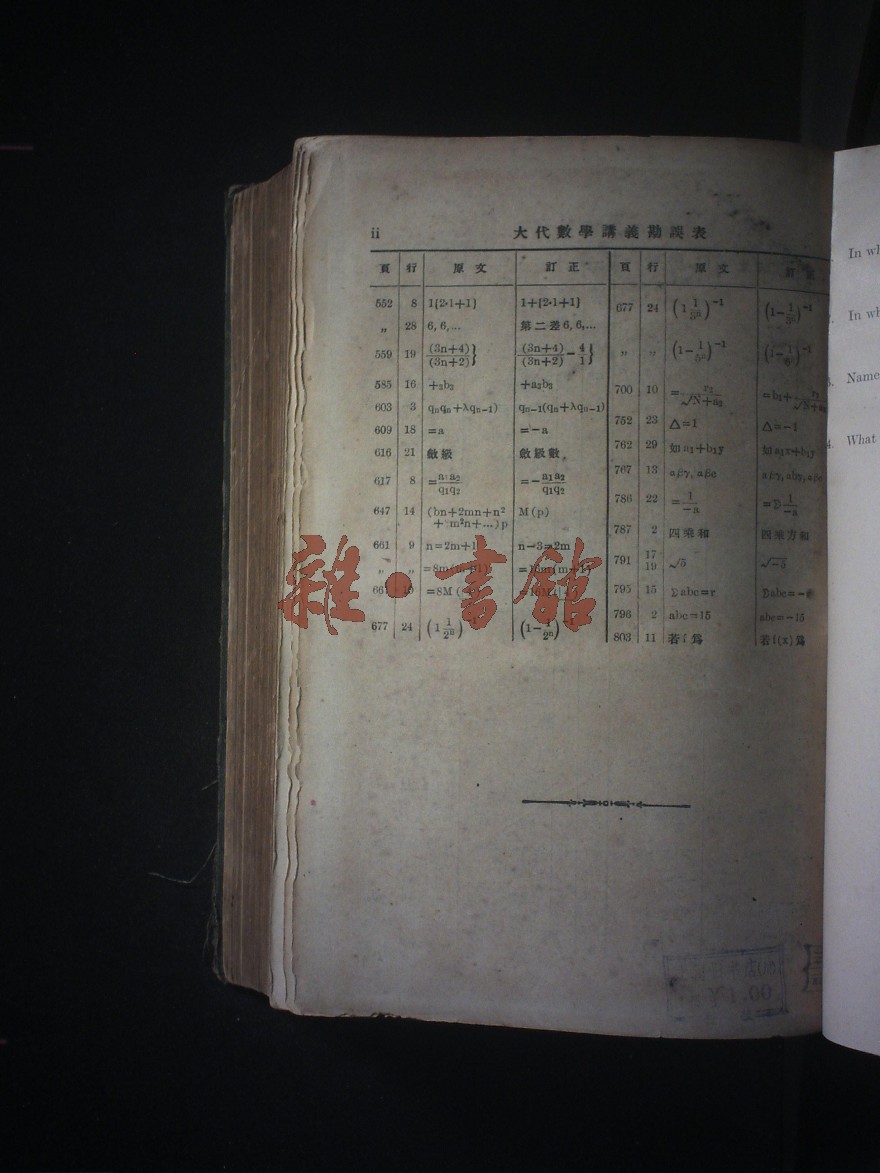 ii 大代數學講義勘誤表
頁 行 原文 訂正 頁 行 原文 訂
552 8 1{2·1+1} 1+{2·1+1}
〃 28 6, 6,... 第二差 6, 6,...
559 19 (3n+4)/(3n+2)} (3n+4)/(3n+2) - 4/1}
585 16 +₂b₂ +a₂b₂
603 3 qₙqₙ+λqₙ₋₁) qₙ₋₁(qₙ+λqₙ₋₁)
609 18 =a =-a
616 21 斂級 斂級數
617 8 =a₁a₂/q₁q₂ =-a₁a₂/q₁q₂
647 14 (bn+2mn+n²+m²n+...)p M(p)
661 9 n=2m+1 n-3=2m
〃 〃 =8m(m+1) =16m(m+1)
=8M =16M
677 24 (1 1/2ⁿ)⁻¹ (1-1/2ⁿ)⁻¹
677 24 (1 1/3ⁿ)⁻¹ (1-1/3ⁿ)⁻¹
〃 〃 (1-1/5ⁿ)⁻¹
700 10 =r₂/√N+a₂ =b₂+r₂/√N+a₂
752 23 △=1 △=-1
762 29 如 a₁+b₁y 如 a₁x+b₁y
767 13 aβγ, aβc aβγ, abγ, aβc
786 22 =1/-a =Σ1/-a
787 2 四乘和 四乘方和
791 17 19 √5 √-5
795 15 Σabc=r Σabc=-
796 2 abc=15 abc=-15
803 11 若 f 爲 若 f(x) 爲
雜·書館
In wh
In wh
Name
4. What